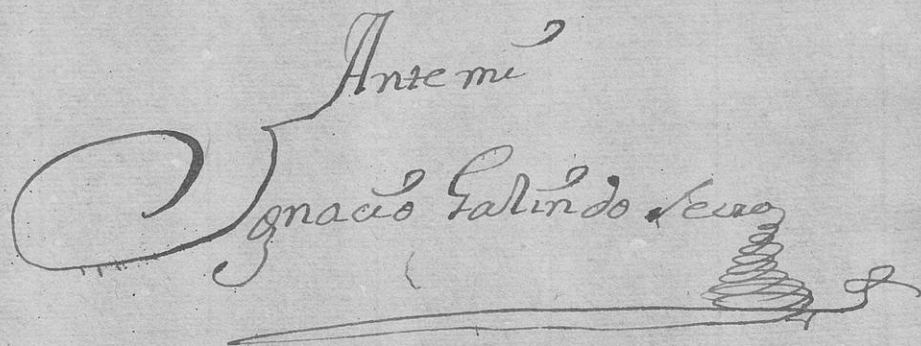 Ante mi
Ygnacio Galindo